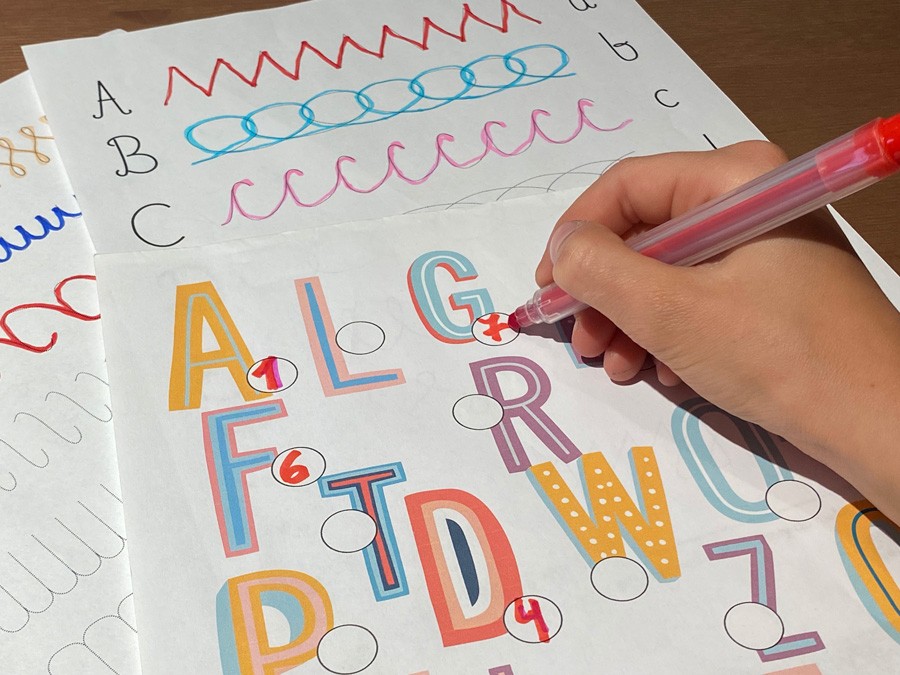 A a
B b
C c
A 1 L G 7
F 6 R O
T D 4 W Z
P